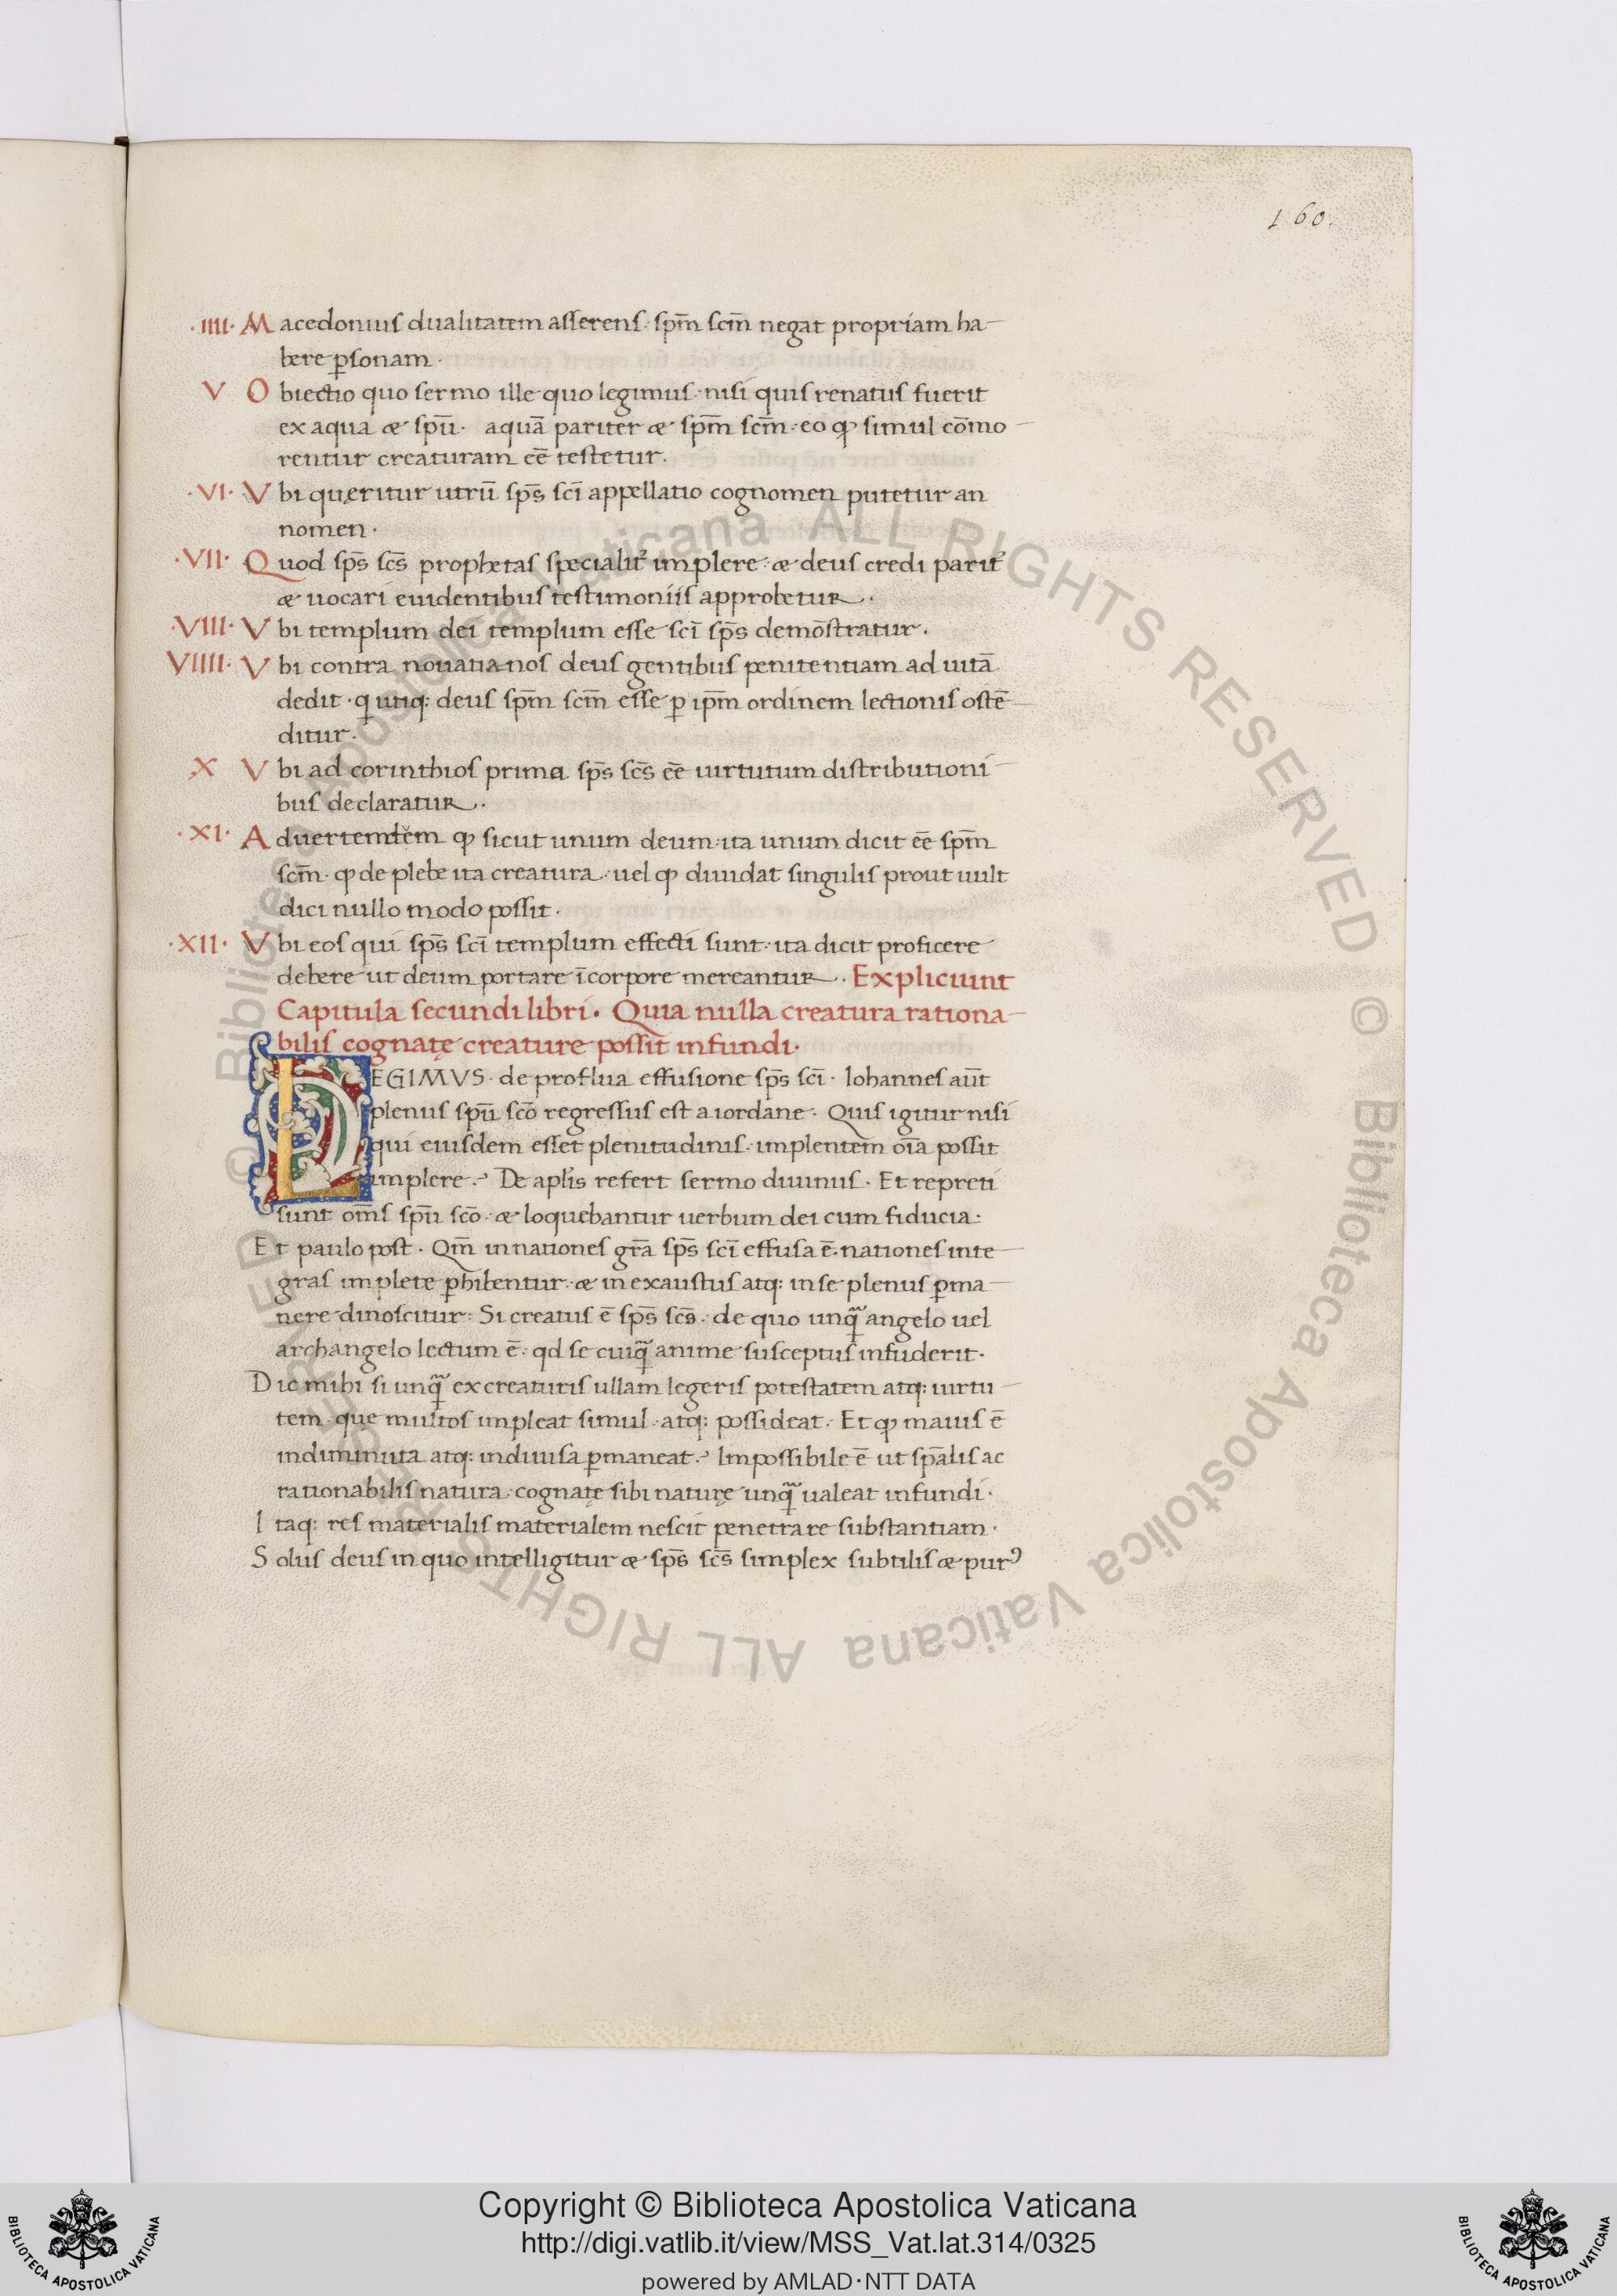 160.
·IIII· Macedonius dualitatem asserens· sp̄m sc̄m negat propriam ha-
bere ꝑsonam·
V Obiectio quo sermo ille quo legimus· nisi quis renatus fuerit
ex aqua æ sp̄u· aquā pariter æ sp̄m sc̄m· eo ꝙ simul cōmo-
rentur creaturam eē testetur.
·VI· Vbi queritur utrū sp̄s sc̄i appellatio cognomen putetur an
nomen·
·VII· Quod sp̄s sc̄s prophetas specialit̉ implere· æ deus credi parit̉
æ uocari euidentibus testimoniis approbetur·
·VIII· Vbi templum dei templum esse sc̄i sp̄s demōstratur.
VIIII· Vbi contra nouatianos deus gentibus penitentiam ad uitā
dedit· q utiq: deus sp̄m sc̄m esse ꝑ ip̄m ordinem lectionis ostē-
ditur·
X Vbi ad corinthios prima sp̄s sc̄s eē uirtutum distributioni-
bus declaratur·
·XI· Aduertemtem ꝙ sicut unum deum· ita unum dicit eē sp̄m
sc̄m· ꝙ de plebe ita creatura· uel ꝙ diuidat singulis prout uult
dici nullo modo possit·
·XII· Vbi eos qui sp̄s sc̄i templum effecti sunt· ita dicit proficere
debere ut deum portare ī corpore mereantur· Expliciunt
Capitula secundi libri· Quia nulla creatura rationa-
bilis cognatę creature possit infundi·
LEGIMVS· de proflua effusione sp̄s sc̄i· Iohannes aūt
plenus sp̄u sc̄o regressus est a iordane· Quis igitur nisi
qui eiusdem esset plenitudinis· implentem oīa possit
implere·? De aplis refert sermo diuinus· Et repreti
sunt om̄s sp̄u sc̄o· æ loquebantur uerbum dei cum fiducia·
Et paulo post· Qm̄ in nationes gr̄a sp̄s sc̄i effusa ē· nationes inte-
gras implete ꝑhibentur· æ inexaustus atq: in se plenus ꝑma-
nere dinoscitur· Si creatus ē sp̄s sc̄s· de quo unq̄ angelo uel
archangelo lectum ē· qd se cuiq̄ anime susceptus infuderit·
Dic mihi si unq̄ ex creaturis ullam legeris potestatem atq: uirtu-
tem· que multos impleat simul· atq: possideat· Et ꝙ maius ē
indiminuta atq: indiuisa ꝑmaneat·? Impossibile ē ut sp̄alis ac
rationabilis natura· cognatę sibi naturę unq̄ ualeat infundi·
Itaq: res materialis materialem nescit penetrare substantiam·
Solus deus in quo intelligitur æ sp̄s sc̄s simplex subtilis æ purꝰ
Biblioteca Apostolica Vaticana ALL RIGHTS RESERVED © Biblioteca Apostolica Vaticana ALL RIGHTS RESERVED ©
Copyright © Biblioteca Apostolica Vaticana
http://digi.vatlib.it/view/MSS_Vat.lat.314/0325
powered by AMLAD·NTT DATA
BIBLIOTECA APOSTOLICA VATICANA
BIBLIOTECA APOSTOLICA VATICANA